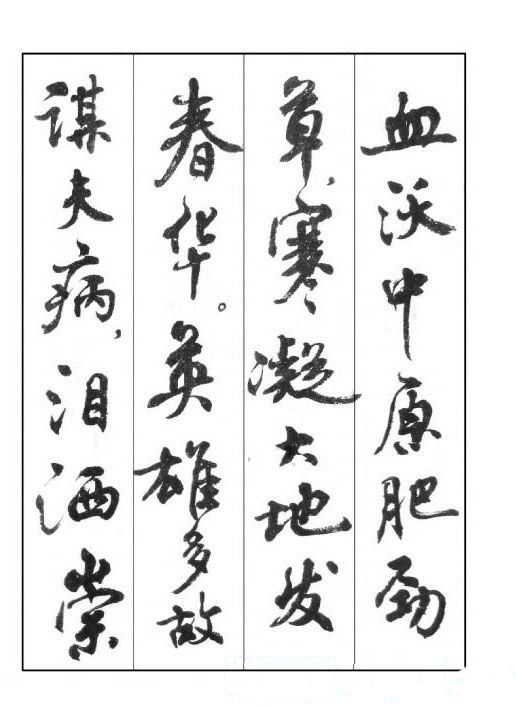 血沃中原肥劲
草,寒凝大地发
春华。英雄多故
谋夫病,泪洒崇